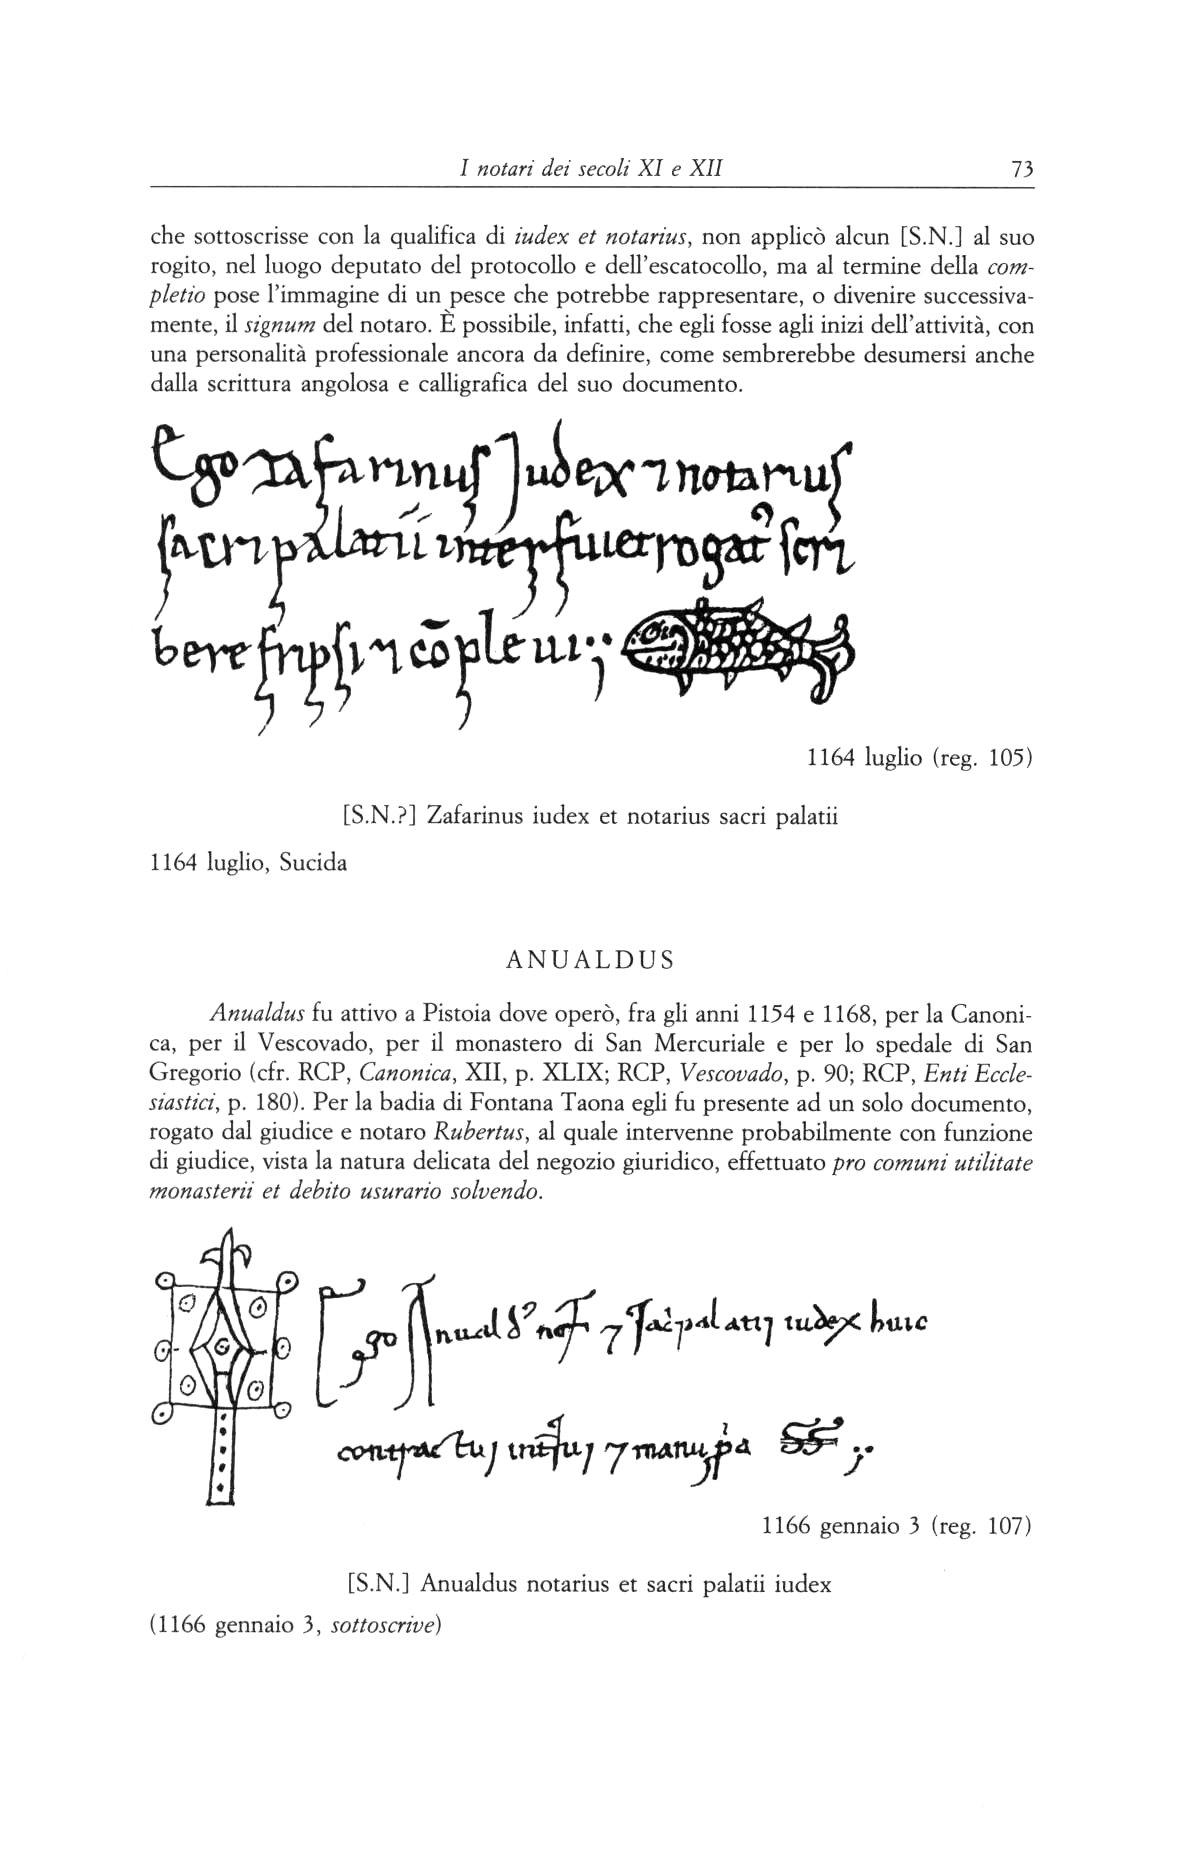 I notari dei secoli XI e XII 73
che sottoscrisse con la qualifica di iudex et notarius, non applicò alcun [S.N.] al suo
rogito, nel luogo deputato del protocollo e dell'escatocollo, ma al termine della com-
pletio pose l'immagine di un pesce che potrebbe rappresentare, o divenire successiva-
mente, il signum del notaro. È possibile, infatti, che egli fosse agli inizi dell'attività, con
una personalità professionale ancora da definire, come sembrerebbe desumersi anche
dalla scrittura angolosa e calligrafica del suo documento.
Ego Zafarinus Judex ⁊ notarius
sacri palatii interfui et rogat' scri
bere scripsi ⁊ cōplevi
1164 luglio (reg. 105)
[S.N.?] Zafarinus iudex et notarius sacri palatii
1164 luglio, Sucida
ANUALDUS
Anualdus fu attivo a Pistoia dove operò, fra gli anni 1154 e 1168, per la Canoni-
ca, per il Vescovado, per il monastero di San Mercuriale e per lo spedale di San
Gregorio (cfr. RCP, Canonica, XII, p. XLIX; RCP, Vescovado, p. 90; RCP, Enti Eccle-
siastici, p. 180). Per la badia di Fontana Taona egli fu presente ad un solo documento,
rogato dal giudice e notaro Rubertus, al quale intervenne probabilmente con funzione
di giudice, vista la natura delicata del negozio giuridico, effettuato pro comuni utilitate
monasterii et debito usurario solvendo.
Ego Anuald' not ⁊ sac palatij iudex huic
contractui ⁊ manu
1166 gennaio 3 (reg. 107)
[S.N.] Anualdus notarius et sacri palatii iudex
(1166 gennaio 3, sottoscrive)